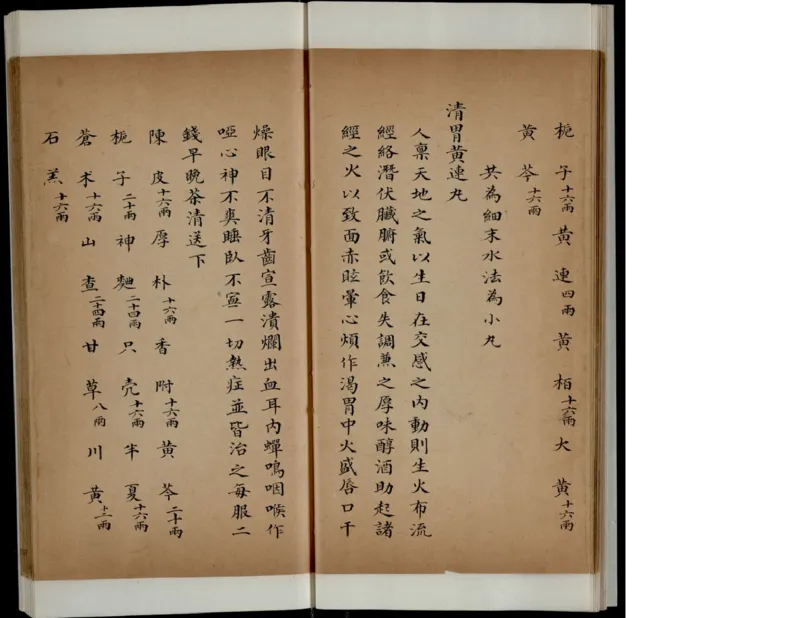 梔子十六兩黃連四兩黃栢十六兩大黃十六兩
黃芩十六兩
共為細末水法為小丸
清胃黃連丸
人稟天地之氣以生日在交感之內動則生火布流
經絡潛伏臟腑或飲食失調兼之厚味醇酒助起諸
經之火以致面赤眩暈心煩作渴胃中火盛唇口干
燥眼目不清牙齒宣露潰爛出血耳內蟬鳴咽喉作
啞心神不爽睡臥不寧一切熱症並皆治之每服二
錢早晚茶清送下
陳皮十六兩厚朴十六兩香附十六兩黃芩二十兩
梔子二十兩神麯二十四兩只壳十六兩半夏十六兩
蒼朮十六兩山查二十四兩甘草八兩川黃十二兩
石羔十六兩